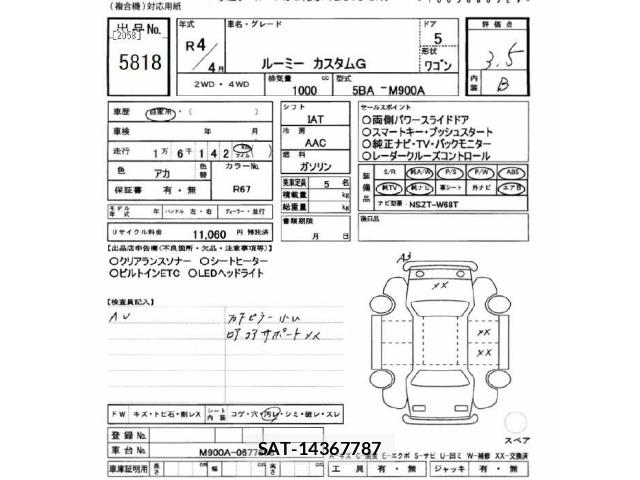 (複合機)対応用紙
出品No.
[2058]
5818
年式
R4/4月
車名・グレード
ルーミー カスタムG
ドア
5
形状
ワゴン
評価点
3.5
内装
B
2WD・4WD
排気量
1000
cc
型式
5BA - M900A
車歴
自家用・( )
車検
年 月
走行
1万 6千 1 4 2
km
マイル
色
アカ
色替
カラーNo.
R67
保証書
有・無
モデル年式
年
ハンドル 左・右
ディーラー・並行
リサイクル料金
11,060 円 預託済
シフト
IAT
冷房
AAC
燃料
ガソリン
乗車定員
5 名
積載量
kg
総重量
kg
書類期限
月 日
セールスポイント
○両側パワースライドドア
○スマートキー・プッシュスタート
○純正ナビ・TV・バックモニター
○レーダークルーズコントロール
装備品
S/R 純A/W P/S P/W ABS
純TV 純ナビ 革シート 外ナビ エアB
ナビ型番: NSZT-W68T
後日品
【出品店申告欄(不良箇所・欠品・注意事項等)】
○クリアランスソナー ○シートヒーター
○ビルトインETC ○LEDヘッドライト
【検査員記入】
AU
コアサポートXX
A3
XX
XX
XX
スペア
FW キズ・トビ石・割レX
シート内装
コゲ・穴・汚レ・シミ・破レ・スレ
登録No.
車台No.
M900A-0677
SAT-14367787
E-エクボ S-サビ U-凹ミ W-補修 XX-交換済
車庫証明用
長さ
幅
高さ
工具 有・無
ジャッキ 有・無